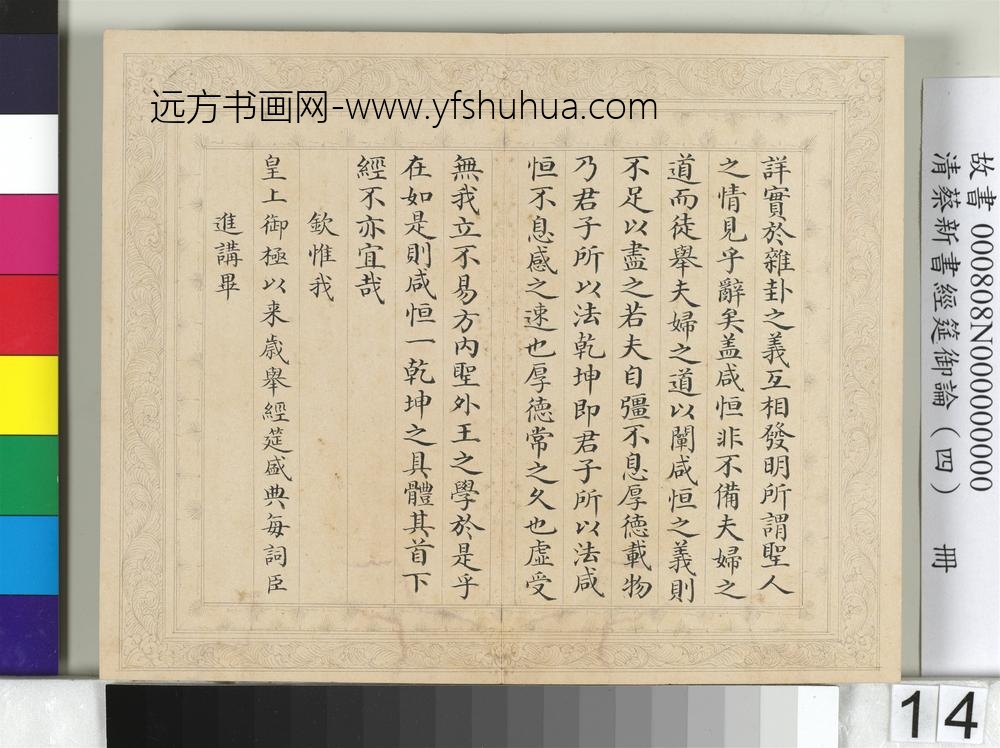 远方书画网-www.yfshuhua.com
詳實於雜卦之義互相發明所謂聖人
之情見乎辭矣盖咸恒非不備夫婦之
道而徒舉夫婦之道以闡咸恒之義則
不足以盡之若夫自彊不息厚德載物
乃君子所以法乾坤即君子所以法咸
恒不息感之速也厚德常之久也虛受
無我立不易方内聖外王之學於是乎
在如是則咸恒一乾坤之具體其首下
經不亦宜哉
欽惟我
皇上御極以来歲舉經筵盛典每詞臣
進講畢
故書 000808N000000000
清蔡新書經筵御論(四) 冊
14